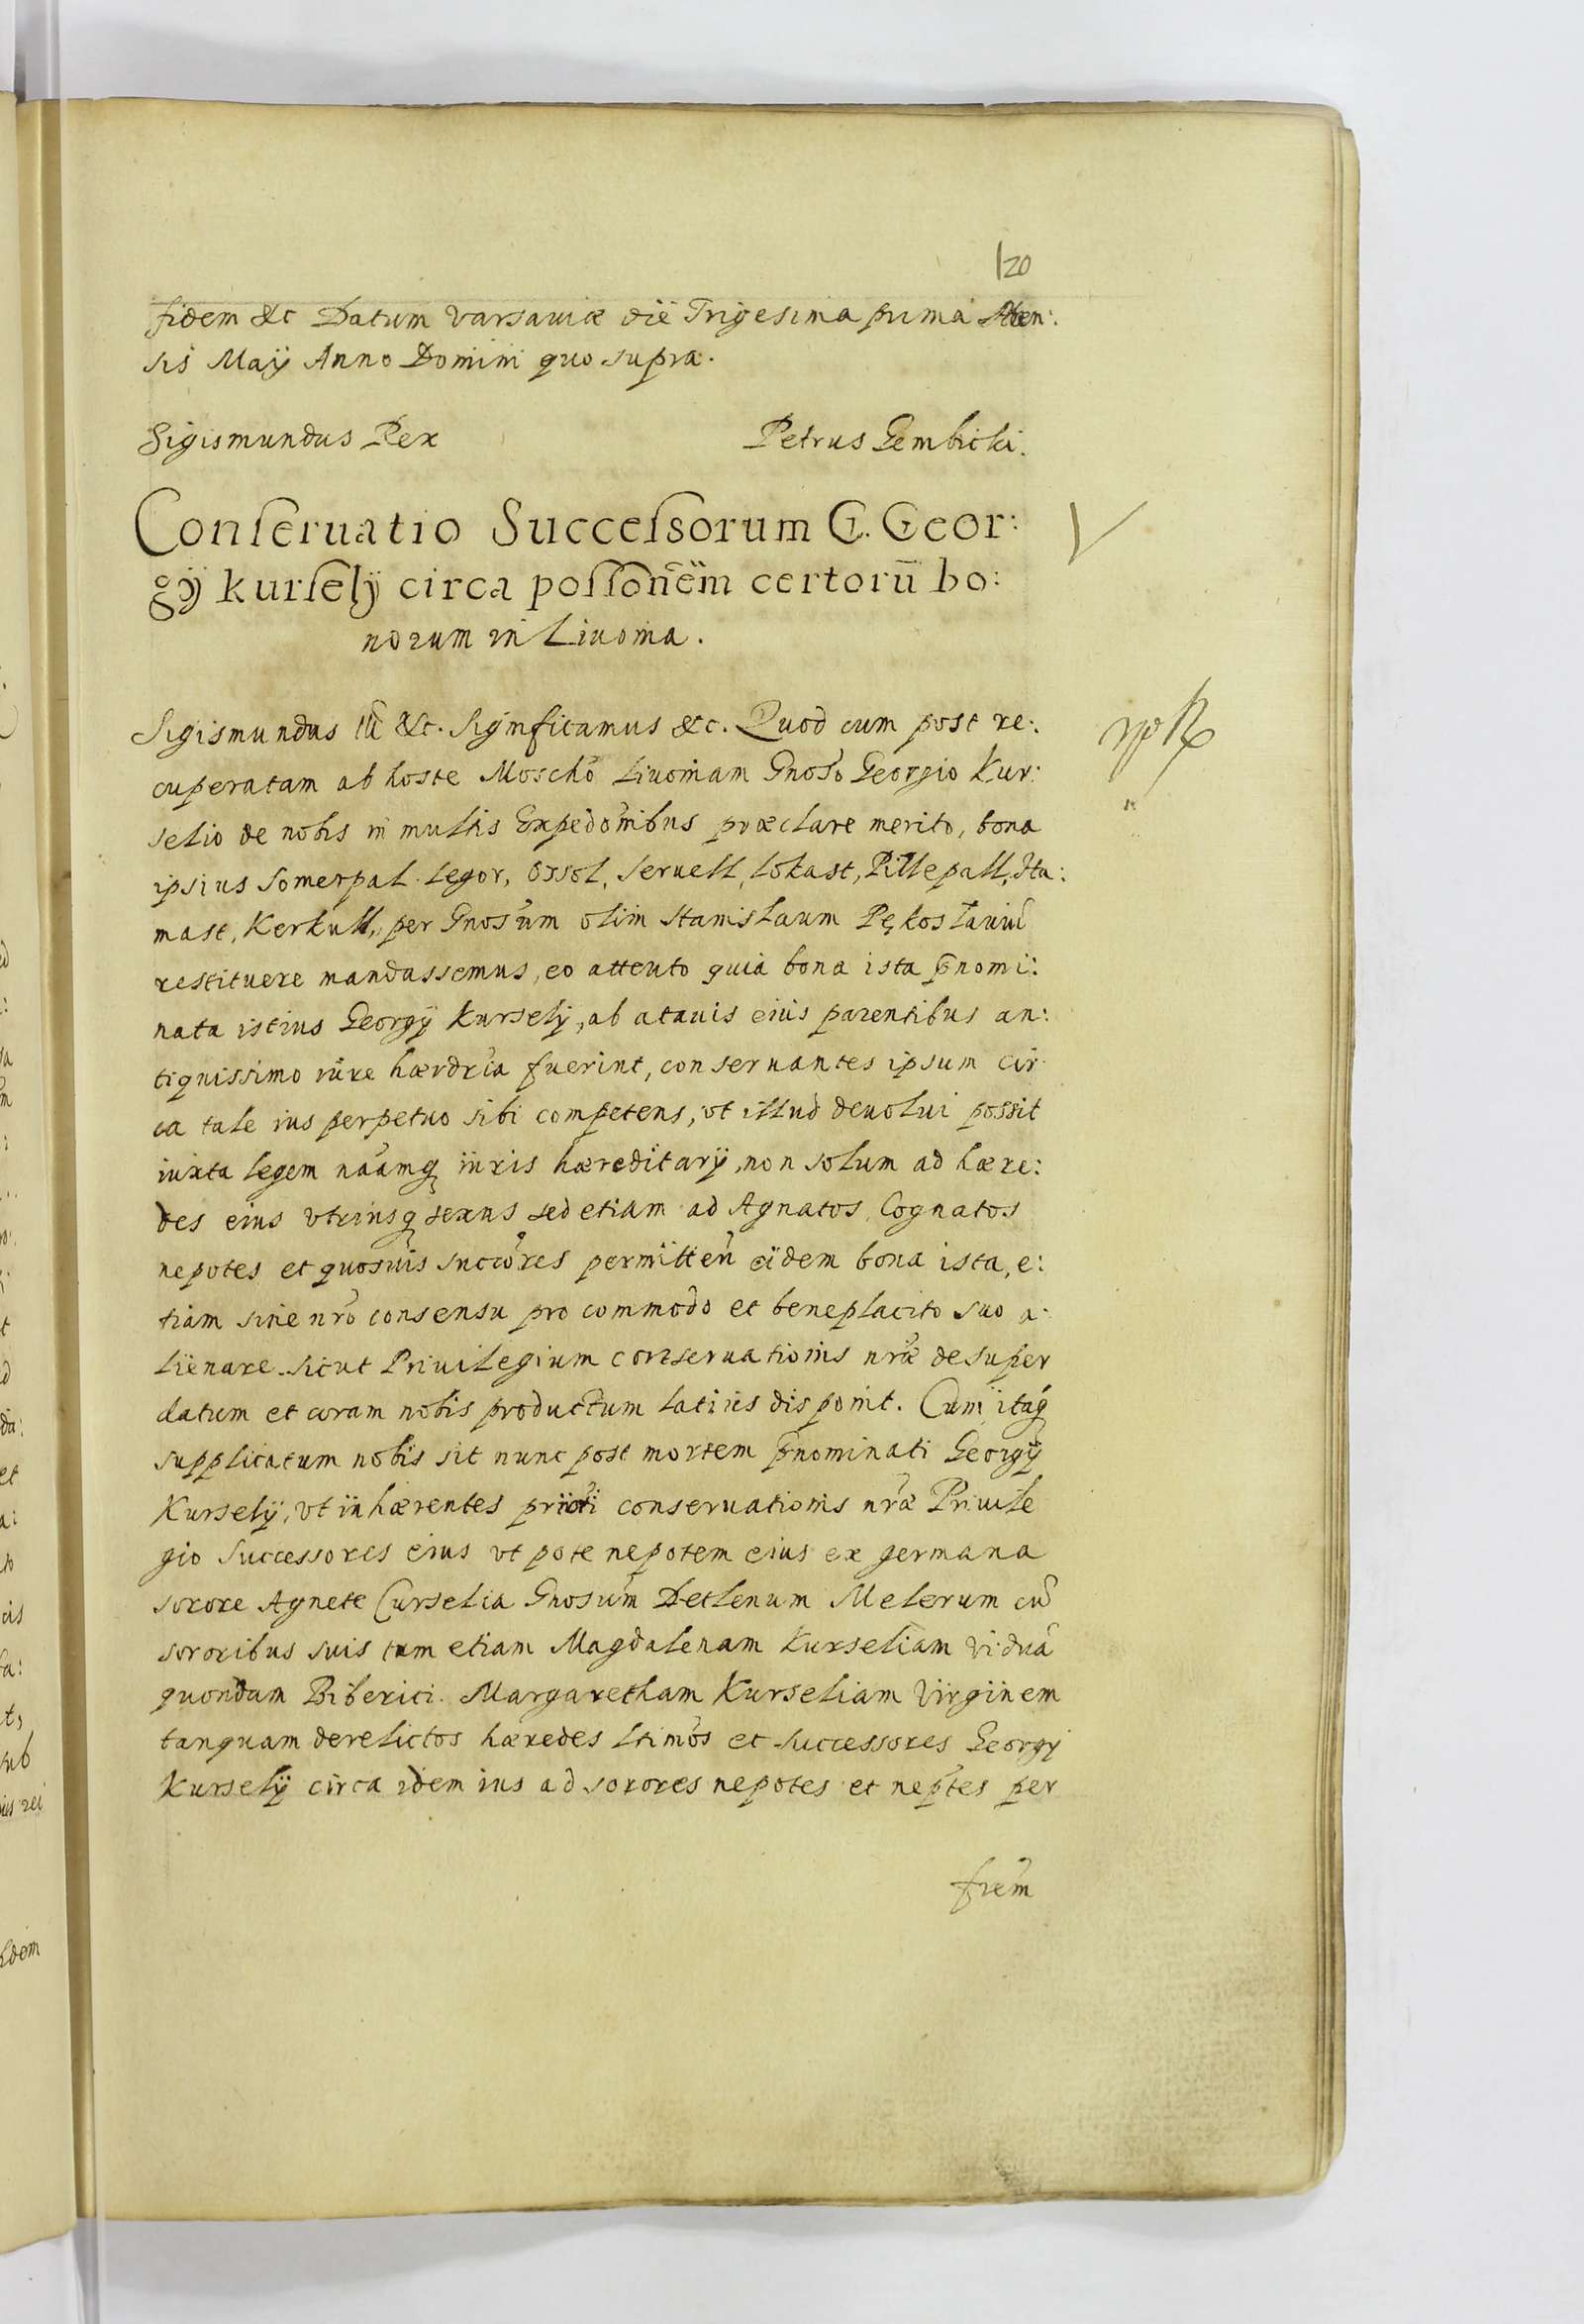 120
fidem &c Datum Varsauiæ die Trigesima prima Men:
sis Maÿ Anno Domini quo supra.
Sigismundus Rex Petrus Gembicki.
Conseruatio Successorum G. Geor:
gÿ kurselÿ circa possonem certorū bo:
norum in Liuonia.
Sigismundus &c. Significamus &c. Quod cum post re:
cuperatam ab hoste Moscho Liuoniam Gnoso Georgio Kur:
selio de nobis in multis Expedonibus præclare merito, bona
ipsius Somerpal. Legor, Ossol, Seruell, Lokast, Pillepall, Ha:
mast, Kerkull, per Gnosum olim Stanislaum Pękoslauiū
restituere mandassemus, eo attento quia bona ista p̄nomi:
nata istius Georgÿ Kurselÿ, ab atauis eius parentibus an:
tiquissimo iure hærdria fuerint, conseruantes ipsum cir
ca tale ius perpetuo sibi competens, vt illud deuolui possit
iuxta legem naamq iuris hæreditarÿ, non solum ad hære:
des eius vtriusq sexus sed etiam ad Agnatos, Cognatos
nepotes et quosuis succores permitten eidem bona ista, e:
tiam sine nro consensu pro commodo et beneplacito suo a:
lienare. Sicut Priuilegium conseruationis nræ desuper
datum et coram nobis productum latius disponit. Cum itaq
supplicatum nobis sit nunc post mortem p̄nominati Georgÿ
Kurselÿ, vt inhærentes priori conseruationis nræ Priuile
gio Successores eius vt pote nepotem eius ex germana
sorore Agnete Curselia Gnosum Detlenum Melerum cū
sororibus suis tum etiam Magdalenam Kurseliam viduā
quondam Biberici. Margaretham Kurseliam Virginem
tanquam derelictos hæredes ltimos et Successores Georgÿ
Kurselÿ circa idem ius ad sorores nepotes et neptes per
frem